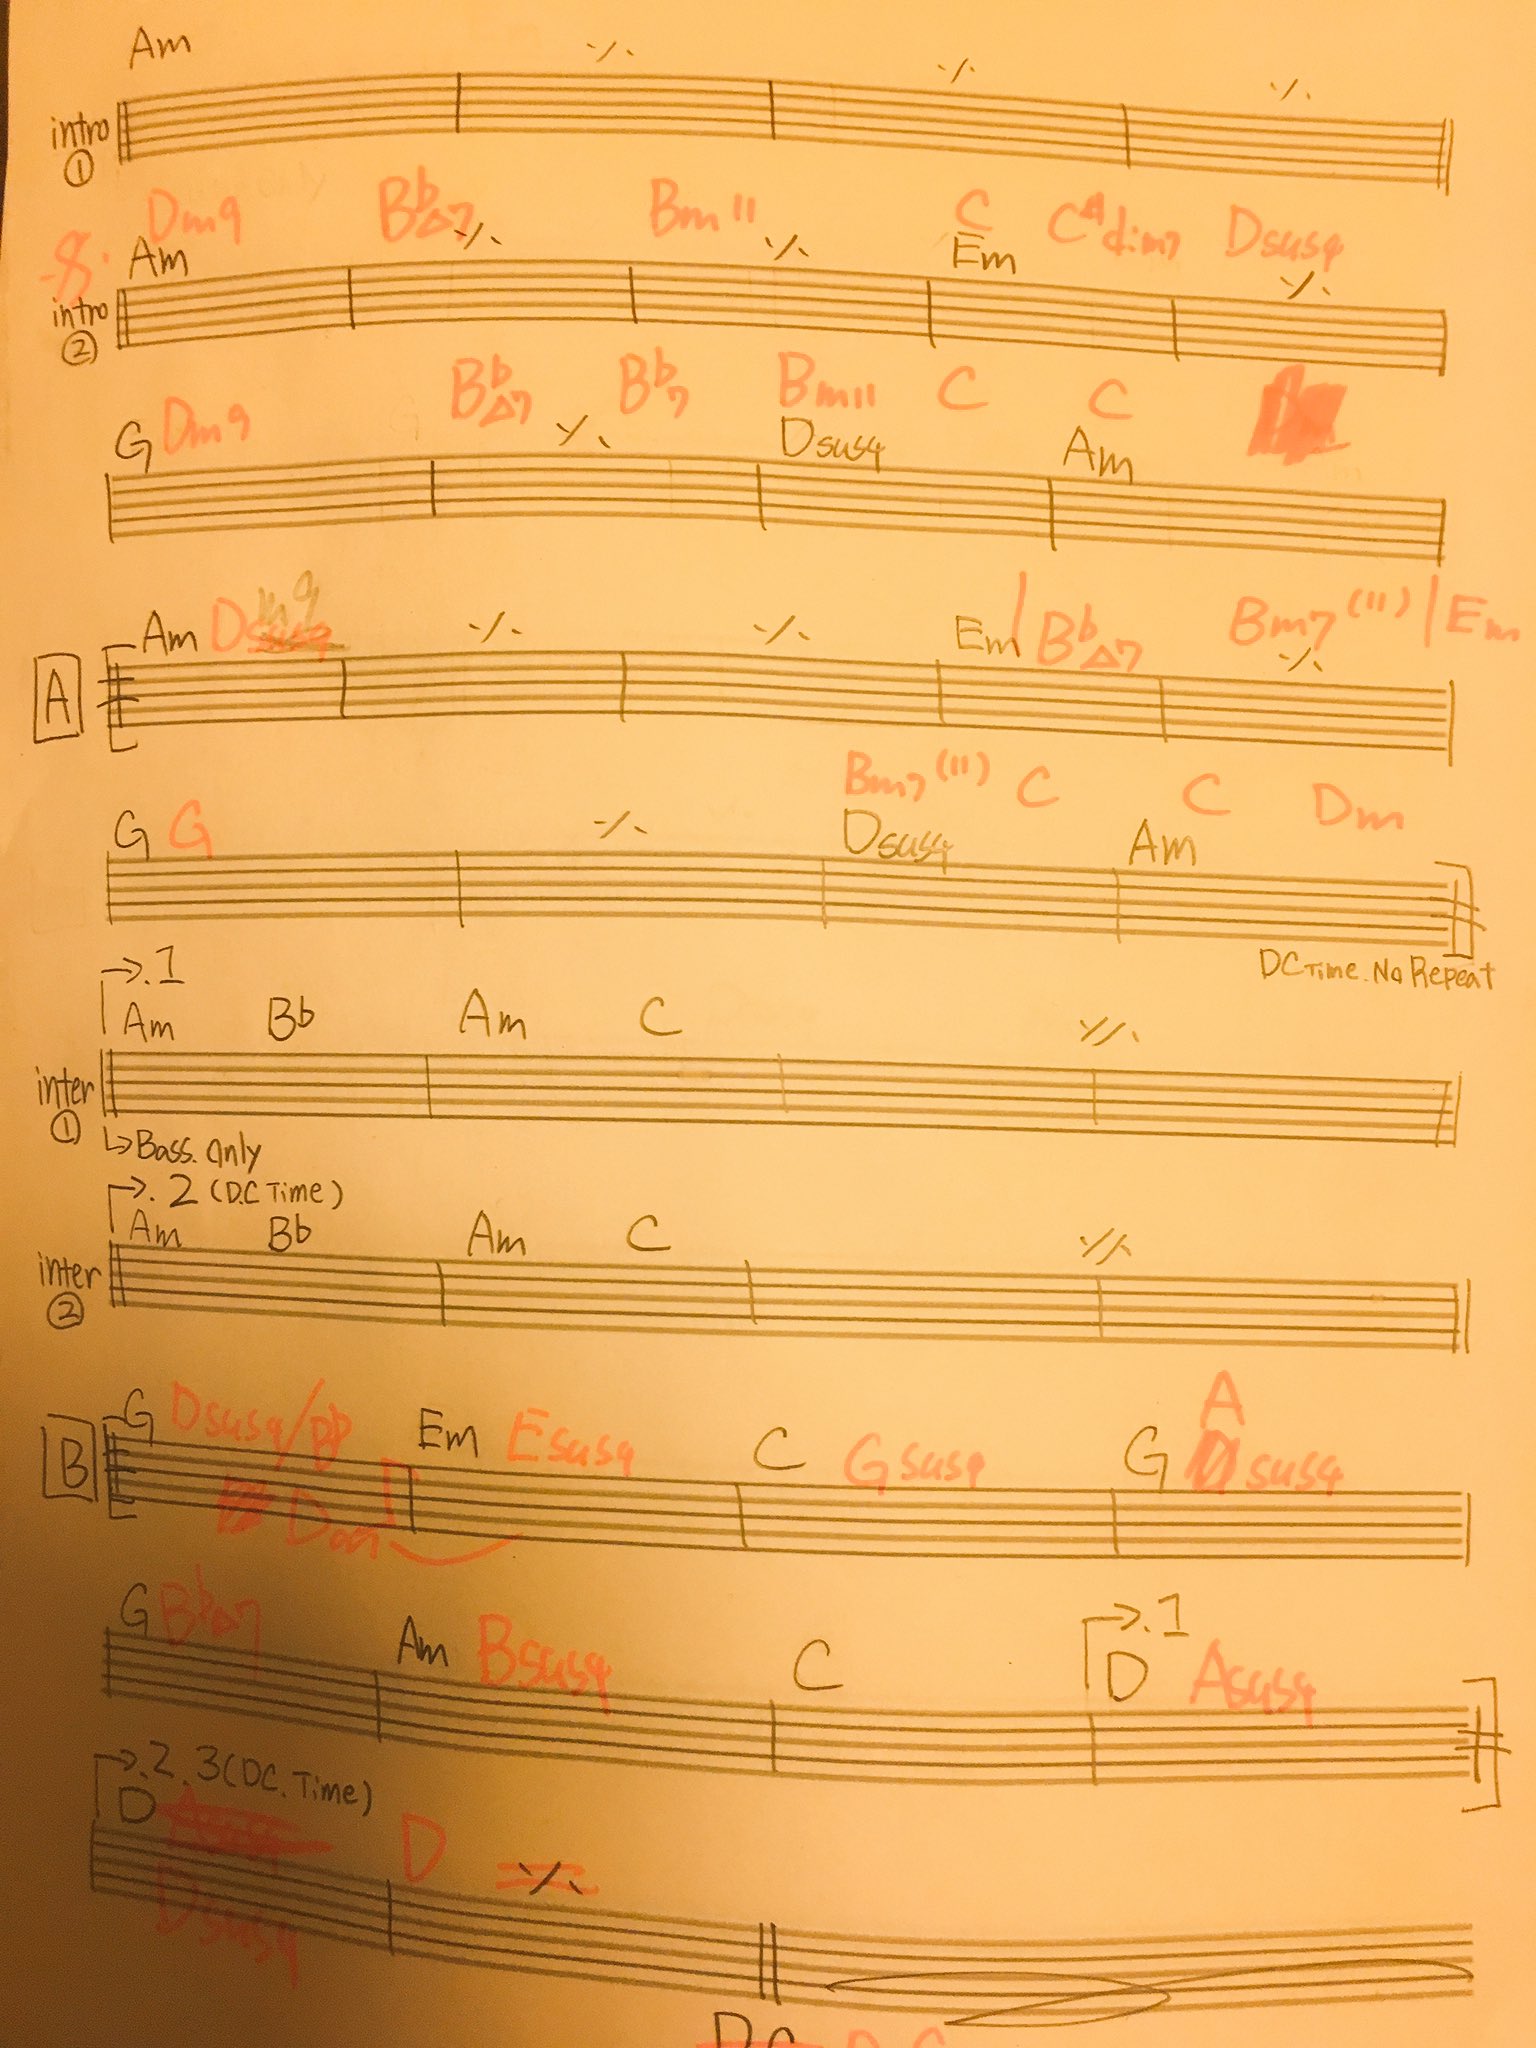 Am ٪ ٪ ٪
intro
①
Dm9 B♭△7 Bm11 C C#dim7 Dsus4
Am ٪ ٪ Em ٪
intro
②
Dm9 B♭△7 B♭7 Bm11 C C
G ٪ Dsus4 Am
Am Dm9 ٪ ٪ Em | B♭△7 Bm7(11) | Em
٪
A
Bm7(11) C C Dm
G G ٪ Dsus4 Am
DC Time. No Repeat
.1
Am B♭ Am C ٪
inter
①
Bass. Only
.2 (D.C Time)
Am B♭ Am C ٪
inter
②
A
G Dsus4/B♭ Em Esus4 C Gsus4 G sus4
B
G B♭△7 Am Bsus4 C D Asus4
.1
.2.3(DC. Time)
D D ٪
Dsus4